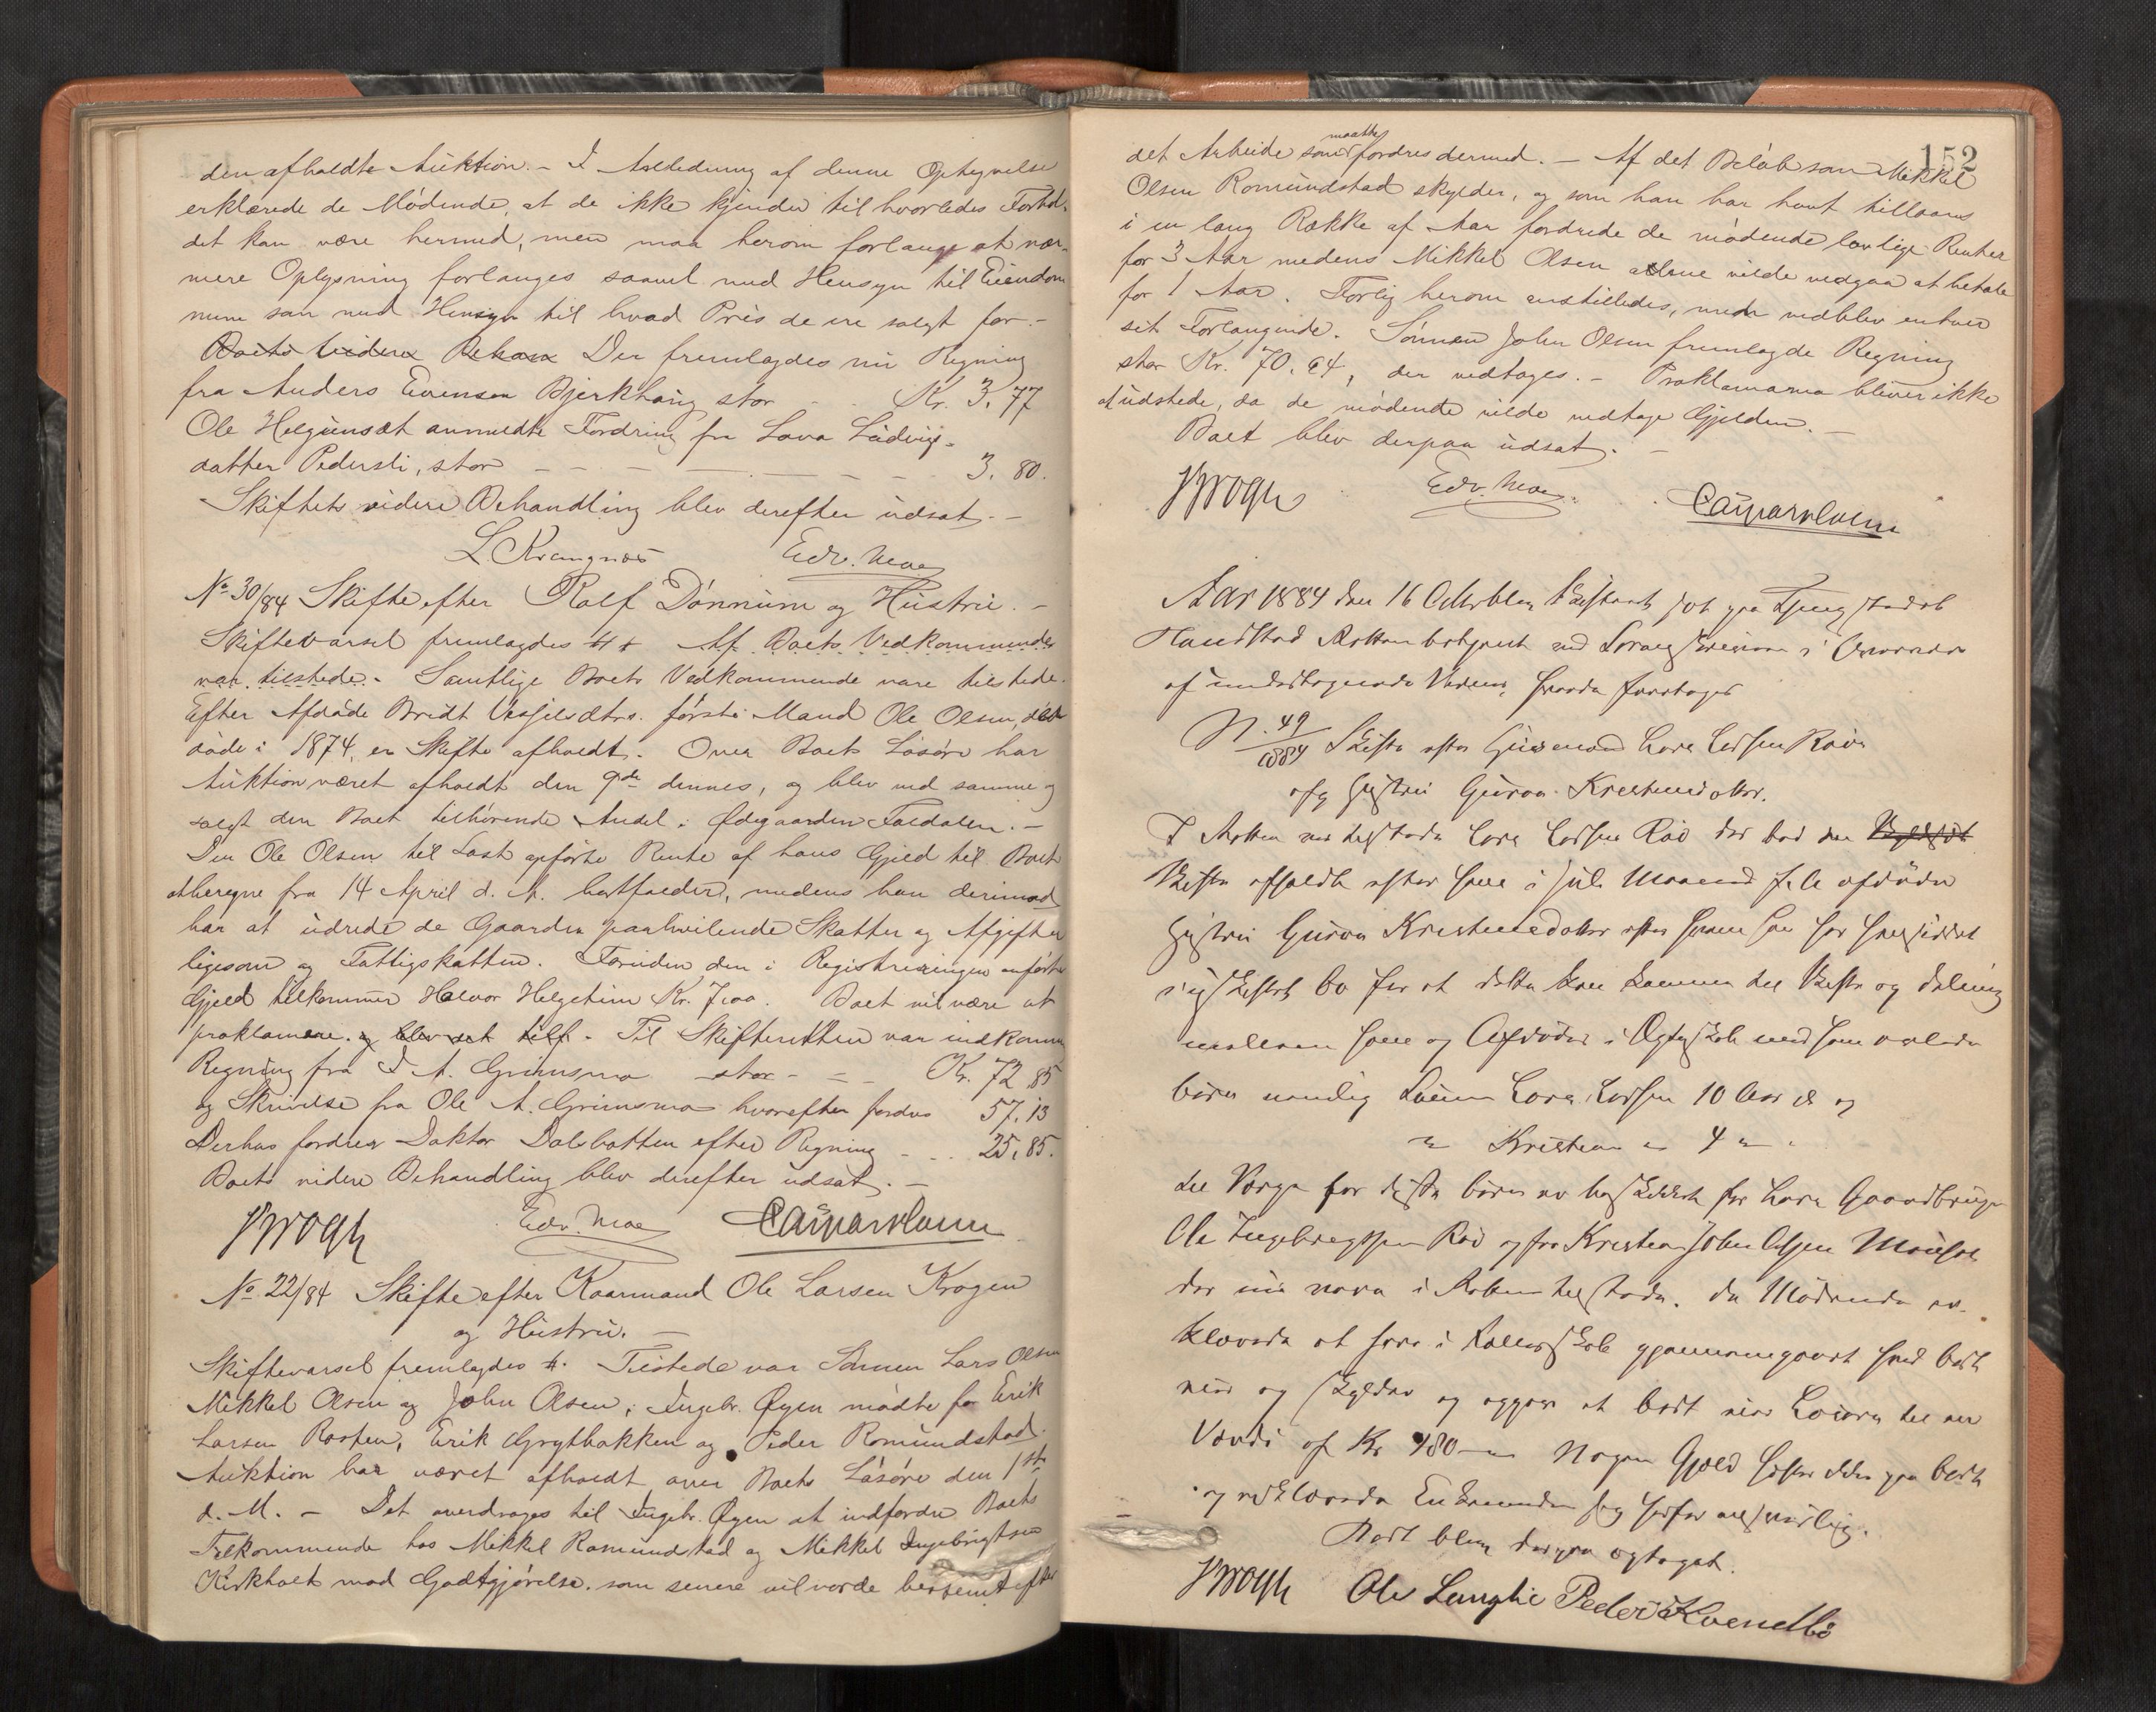 den afholdte Auktion. – I Anledning af denne Optegnelse
erklærede de Mødende, at de ikke kjender til hvorledes Forhol-
det kan være hermed, men maa herom forlange at nær-
mere Oplysning forlanges saavel med Hensyn til Eiendom
mene som med Hensyn til hvad Pris de ere solgt for. –
Boets videre Der fremlagdes nu Regning
fra Anders Evensen Bjerkhaug stor - - Kr. 3,77
Ole Helgunset anmeldte Fordring fra Lava Ludvigs-
datter Pedersli, stor – – – – – 3,80.
Skiftets videre Behandling blev derefter udsat. –
L. Krangnæs Edv. Moe
No 30/84 Skifte efter Rolf Dønnum og Hustru. –
Skiftevarsel fremlagdes Af Boets Vedkommende
var tilstede. – Samtlige Boets Vedkommende vare tilstede.
Efter Afdøde Bridt første Mand Ole Olsen, der
døde i 1874, er Skifte afholdt. Over Boets Løsøre har
Auktion været afholdt den 9de dennes, og blev ved samme og
solgt den Boet tilhørende Andel i Ødegaarden Foldalen. –
Den Ole Olsen til Last opførte Rente af hans Gjeld til Boet
at beregne fra 14 April d. A. bortfalder, medens han derimod
har at udrede de Gaarden paahvilende Skatter og Afgifter
ligesom og Fattigskatten. Foruden den i Registreringen anførte
Gjeld tilkommer Halvor Helgetun Kr. 7,00. Boet vil være at
proklamere. og blev sat Til Skifteretten var indkommen
Regning fra I. A. Grimsmo stor - - - Kr. 72,85
og Skrivelse fra Ole A. Grimsmo hvorefter fordres 57,13
Derhos fordrer Doktor Dalsbotten efter Regning - - - 25,85.
Boets videre Behandling blev derefter udsat. –
Krogh Edv. Moe
No 22/84 Skifte efter Kaarmand Ole Larsen Krogen
og Hustru. –
Skiftevarsel fremlagdes Tilstede var Sønnen Lars Olsen
Mikkel Olsen og John Olsen; Ingebr. Øyen mødte for Erik
Larsen Rosten, Erik Grytbakken og Peder Romundstad.
Auktion har været afholdt over Boets Løsøre den 1ste
d. M. – Det overdroges til Ingebr. Øyen at indfordre Boets
Tilkommende hos Mikkel Romundstad og Mikkel Ingebrigtsen
Kirkholt mod Godtgjørelse, som senere vil vorde bestemt efter
152
det Arbeide som maatte fordres dermed. – Af det Beløb som Mikkel
Olsen Romundstad skylder, og som han har havt tillaans
i en lang Række af Aar fordrede de mødende lovlige Renter
for 3 Aar medens Mikkel Olsen alene vilde vedgaa at betale
for 1 Aar. Forlig herom anstilledes, men vedblev enhver
sit Forlangende. Sønnen John Olsen fremlagde Regning
stor Kr. 70,64, der vedtoges. – Proklamama bliver ikke
at udstede, da de mødende vilde vedtage Gjelden. –
Boet blev derpaa udsat. –
Krogh Edv. Moe
Aar 1884 den 16 Oktbr blev Skifteret sat paa Tingstedet
Haandstad Retten betjent ved Sorenskriveren i Overvær
af undertegnede Vidner, hvorda foretoges
N. 49/1884 Skifte efter Husmand Lars Larsen Røv
og Hustru Guroa Kristensdotter.
I Retten var tilstede Lars Larsen Røv der bad
Skifte afholdt efter hans i Juli Maaned f. A. afdøde
Hustru Guroa Kristensdotter efter hvem han har hensiddet
i uskiftet Bo for at dette kan komme til Skifte og deling
mellem ham og Afdødes i Ægteskab med ham avlede
børn nemlig Sønnen Lars Larsen 10 Aar og
" Kristian " 4 " .
til Værge for disse børn er beskikket for Lars Gaardbruger
Ole Ingebrigtsen Røv og for Kristian John Olsen
der nu vare i Retten tilstede. De Mødende er-
klærede at have i Fællesskab gjennemgaaet hvad Boet
eier og skylder og opgav at Boet eier Løsøre til en
Værdi af Kr 480 – Nogen Gjæld hefter ikke paa Boet
og erklærede Enkemanden sig herfor ansvarlig.
Boet blev derpaa optaget.
Krogh Ole Langlie Peder Kvendbø